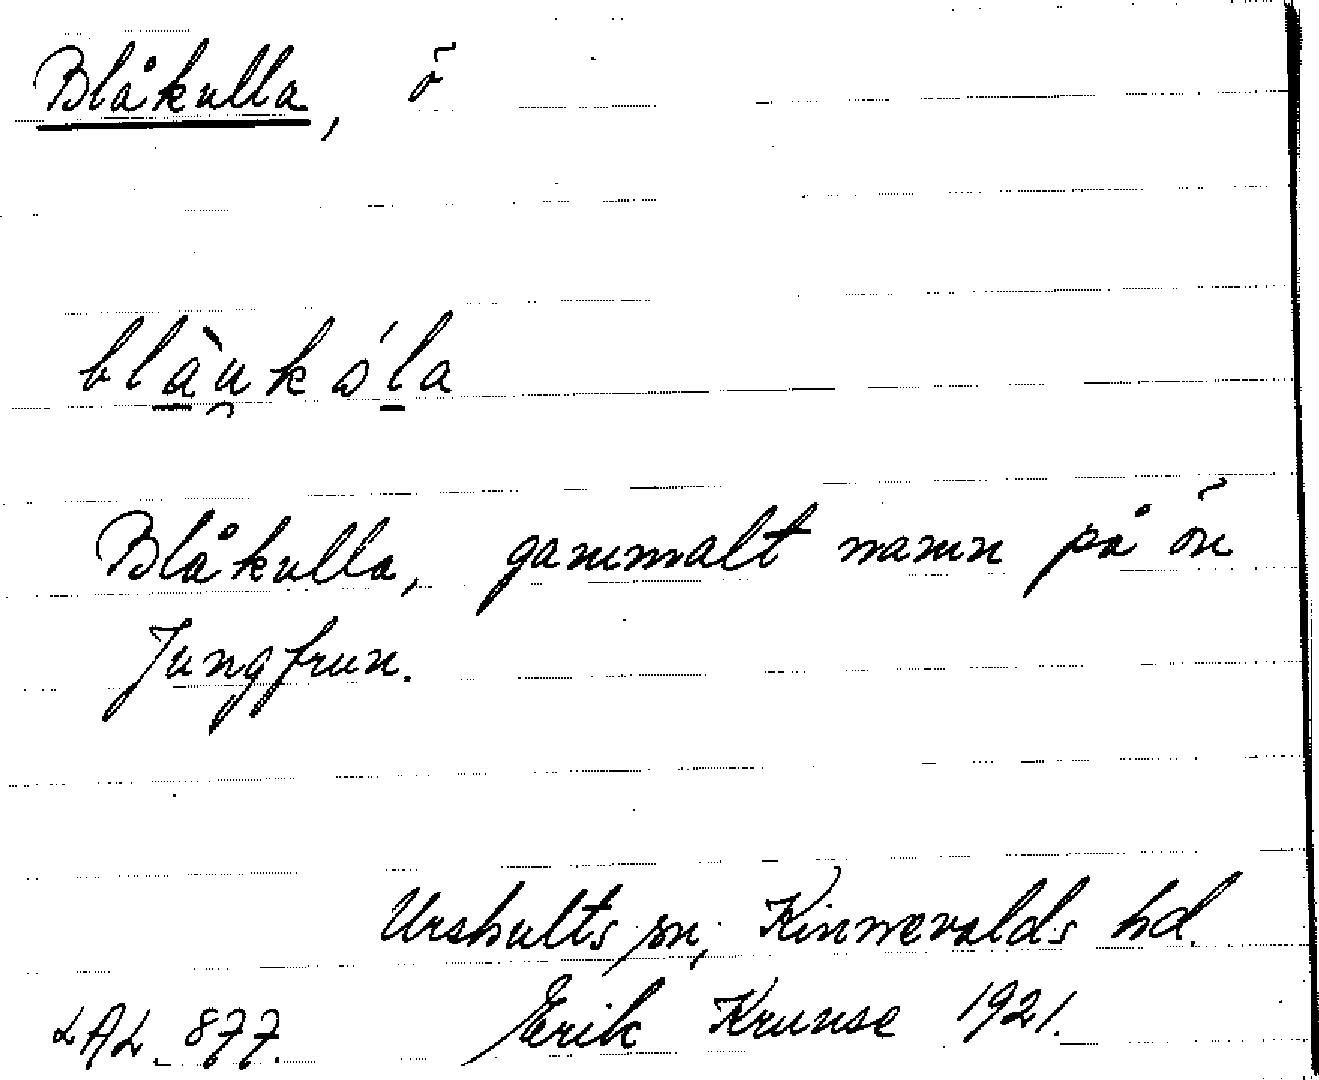 Blåkulla, ö
blàu̯kớla
Blåkulla, gammalt namn på ön
Jungfrun.
Urshults sn, Kinnevalds hd.
LAL. 877. Erik Krunse 1921.